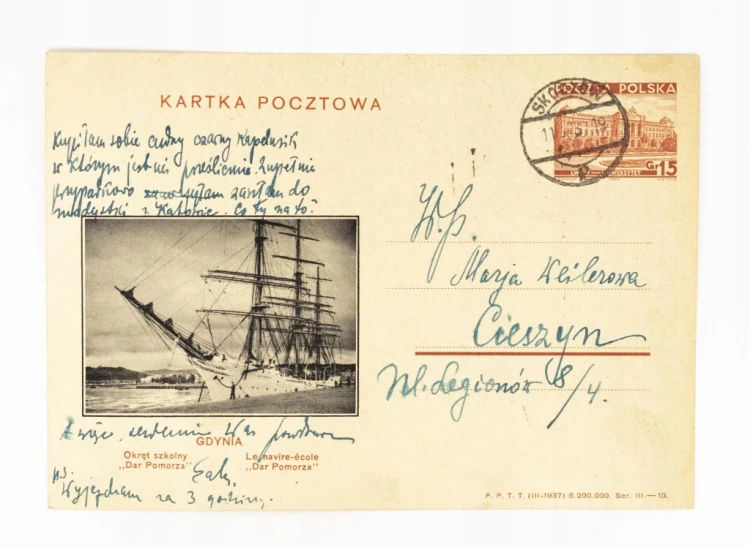 KARTKA POCZTOWA
POCZTA POLSKA
SKOCZÓW
Gr 15
Kupiłam sobie cudny czarny kapelusik
w którym jest mi prześlicznie. Zupełnie
przypadkowo zaszłam do
modystki z Katowic. Co ty na to?
W.P.
Marja Weilerowa
Cieszyn
Ul. Legionów 8/4.
A więc, serdecznie Was
GDYNIA
Okręt szkolny
„Dar Pomorza"
Le navire-école
„Dar Pomorza"
p.s.
Wyjeżdżam za 3 godziny.
P. P. T. T. (III-1937) 6.200.000. Ser. III.—10.